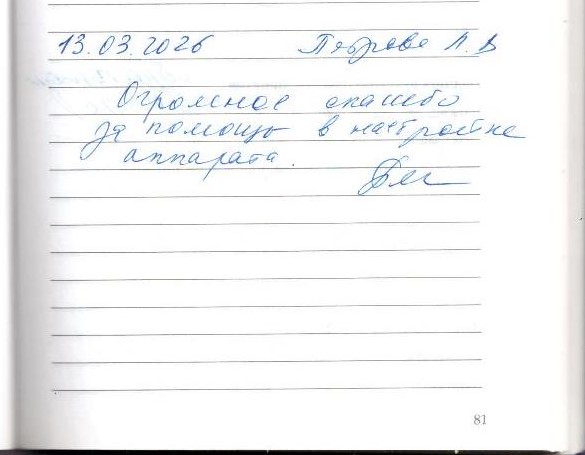 13.03.2026 Петрова Л.В
Огромное спасибо
за помощь в настройке
аппарата.
81